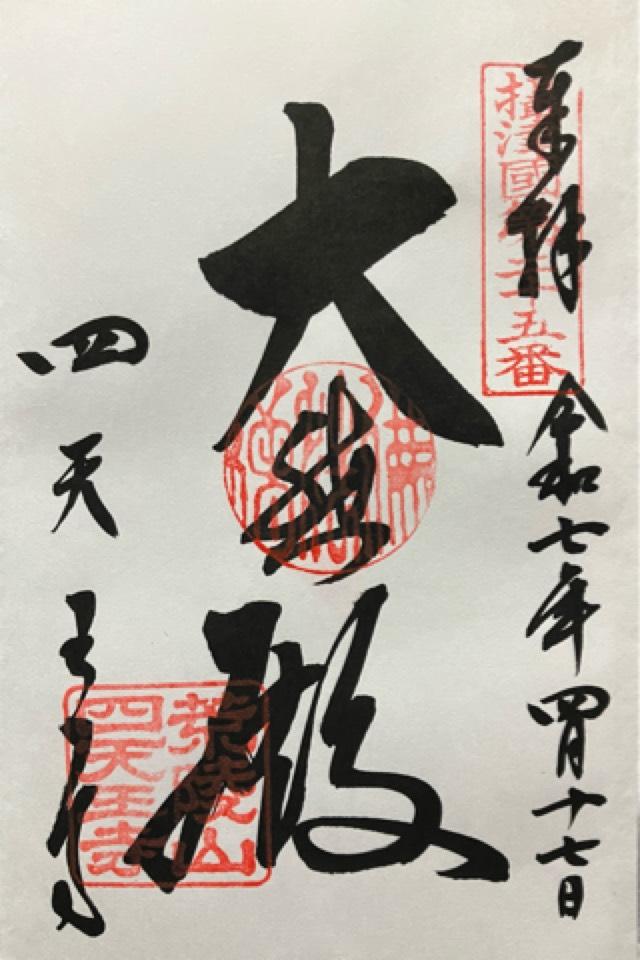 奉拝
摂津國第二十五番
令和七年四月十七日
大
殿
四天王寺
荒陵山
四天王寺